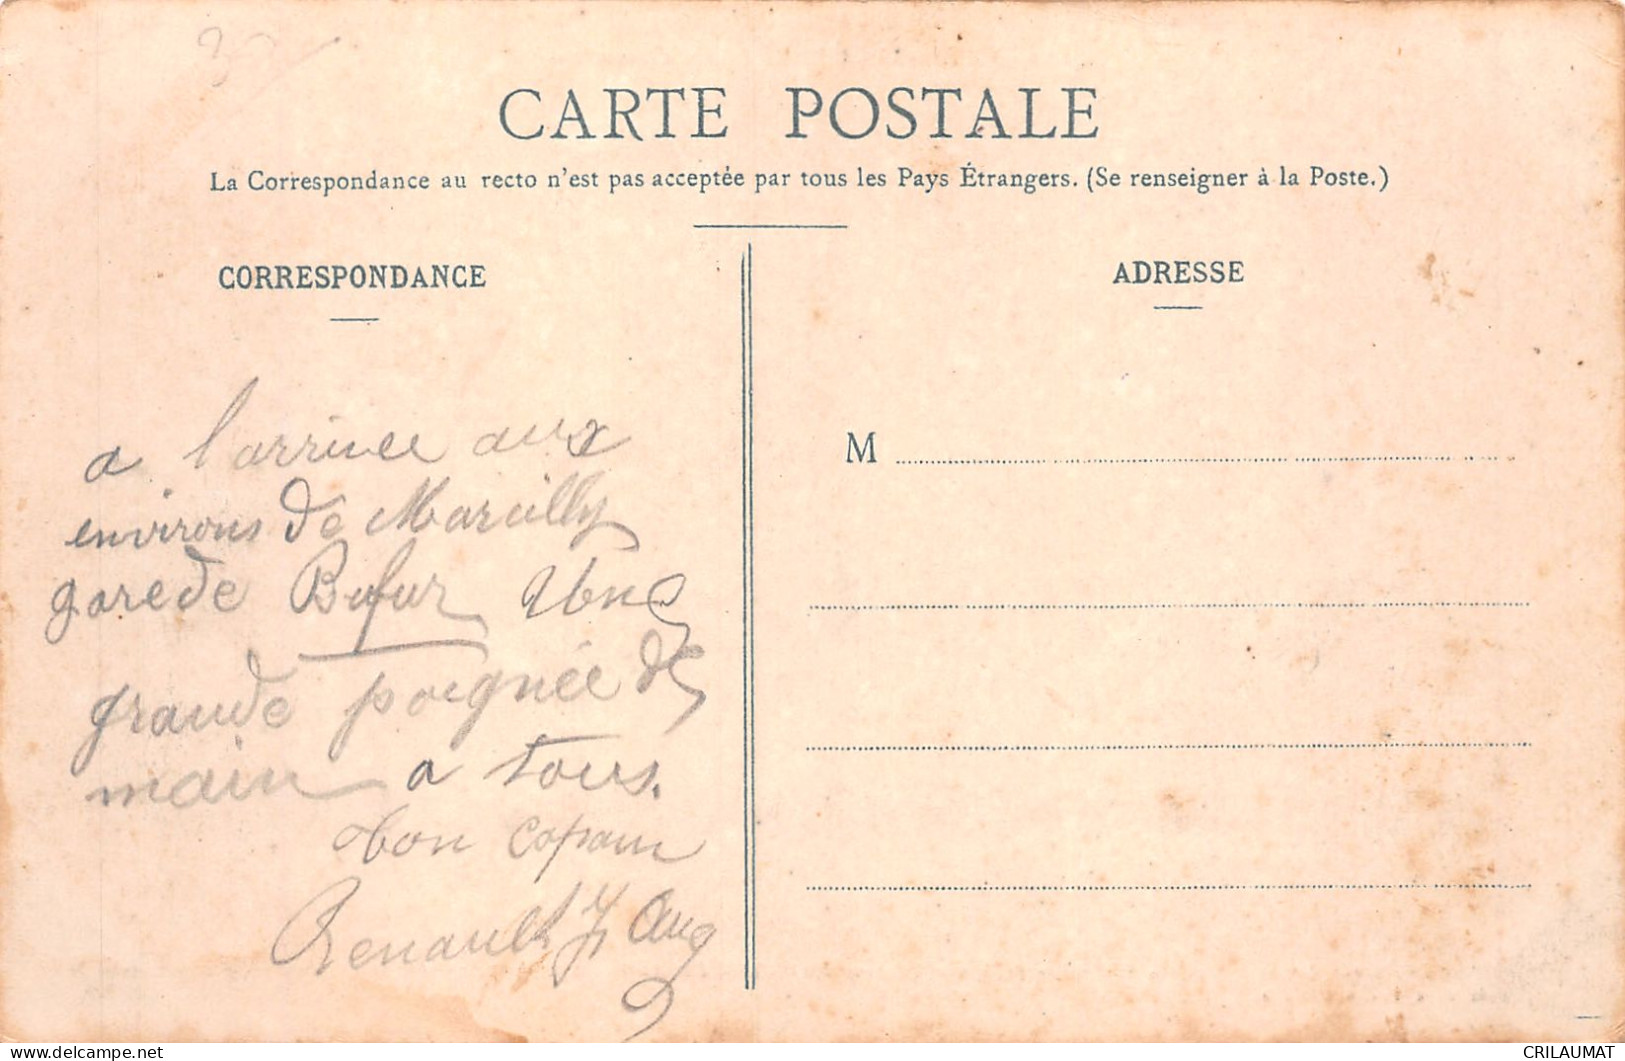 CARTE POSTALE
La Correspondance au recto n'est pas acceptée par tous les Pays Étrangers. (Se renseigner à la Poste.)
CORRESPONDANCE
ADRESSE
M
a l'arrivee aux
environs de Marcilly
gare de Bufur Une
grande poignée de
main a tous.
bon copain
Renault Aug
CRILAUMAT